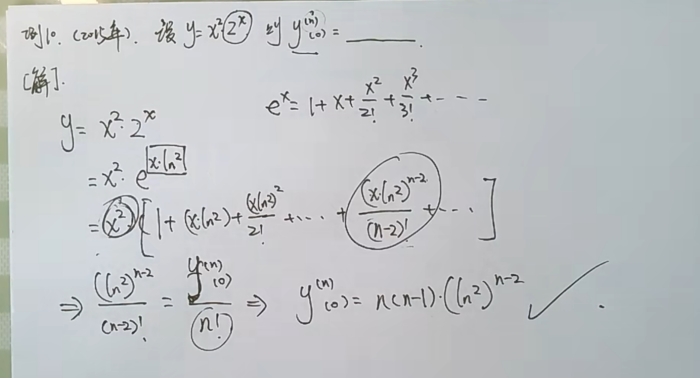 例10. (2015年). 设 y=x²2ˣ 则 y⁽ⁿ⁾(0) = ______.
[解].
eˣ = 1 + x + x²/2! + x³/3! + ······
y = x²·2ˣ
= x²·e^(x·ln2)
= x²[1 + (x·ln2) + (xln2)²/2! + ··· + (x·ln2)ⁿ⁻²/(n-2)! + ···]
⇒ (ln2)ⁿ⁻²/(n-2)! = y⁽ⁿ⁾(0)/n! ⇒ y⁽ⁿ⁾(0) = n(n-1)·(ln2)ⁿ⁻² ✓.